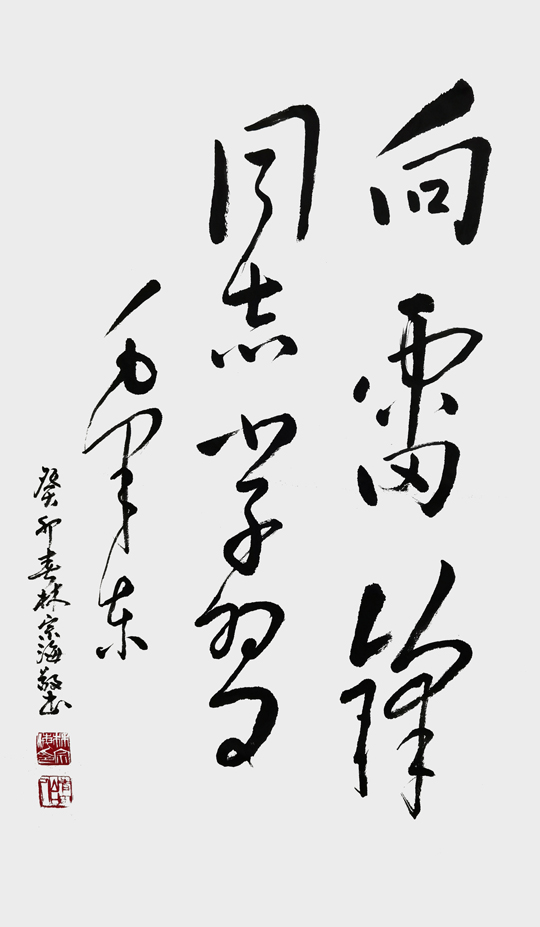 向雷锋
同志学习
毛泽东
癸卯春林宗海敬书